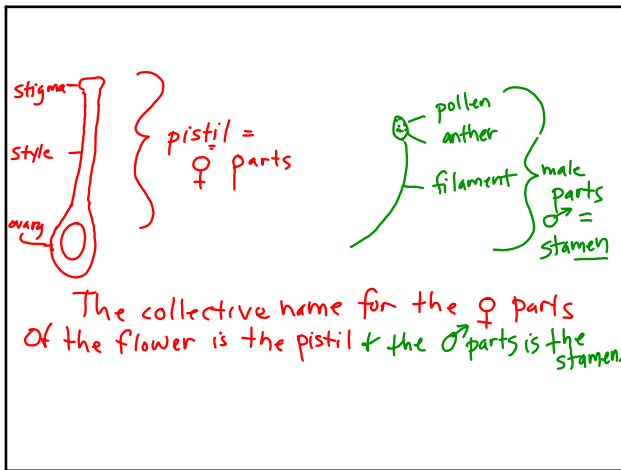 stigma
style
ovary
pistil =
♀ parts
pollen
anther
filament
male
parts
♂ =
stamen
The collective name for the ♀ parts
Of the flower is the pistil + the ♂ parts is the
stamen.